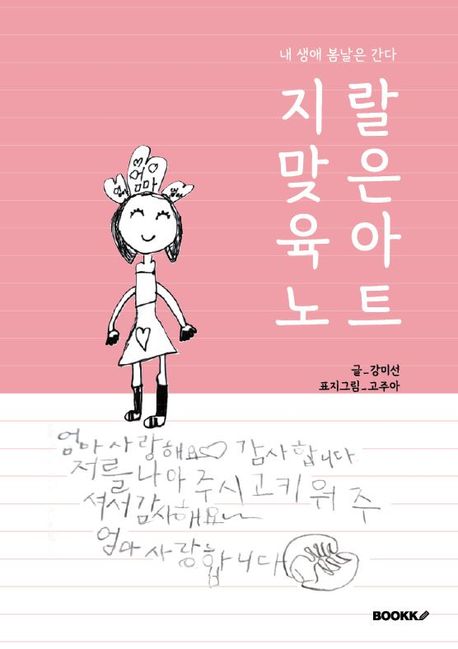 내 생애 봄날은 간다
지랄
맞은
육아
노트
글_강미선
표지그림_고주아
엄마
엄마사랑해요♡ 감사합니다
저를나아주시고키워주
셔서감사해요~
엄마사랑합니다
BOOKK